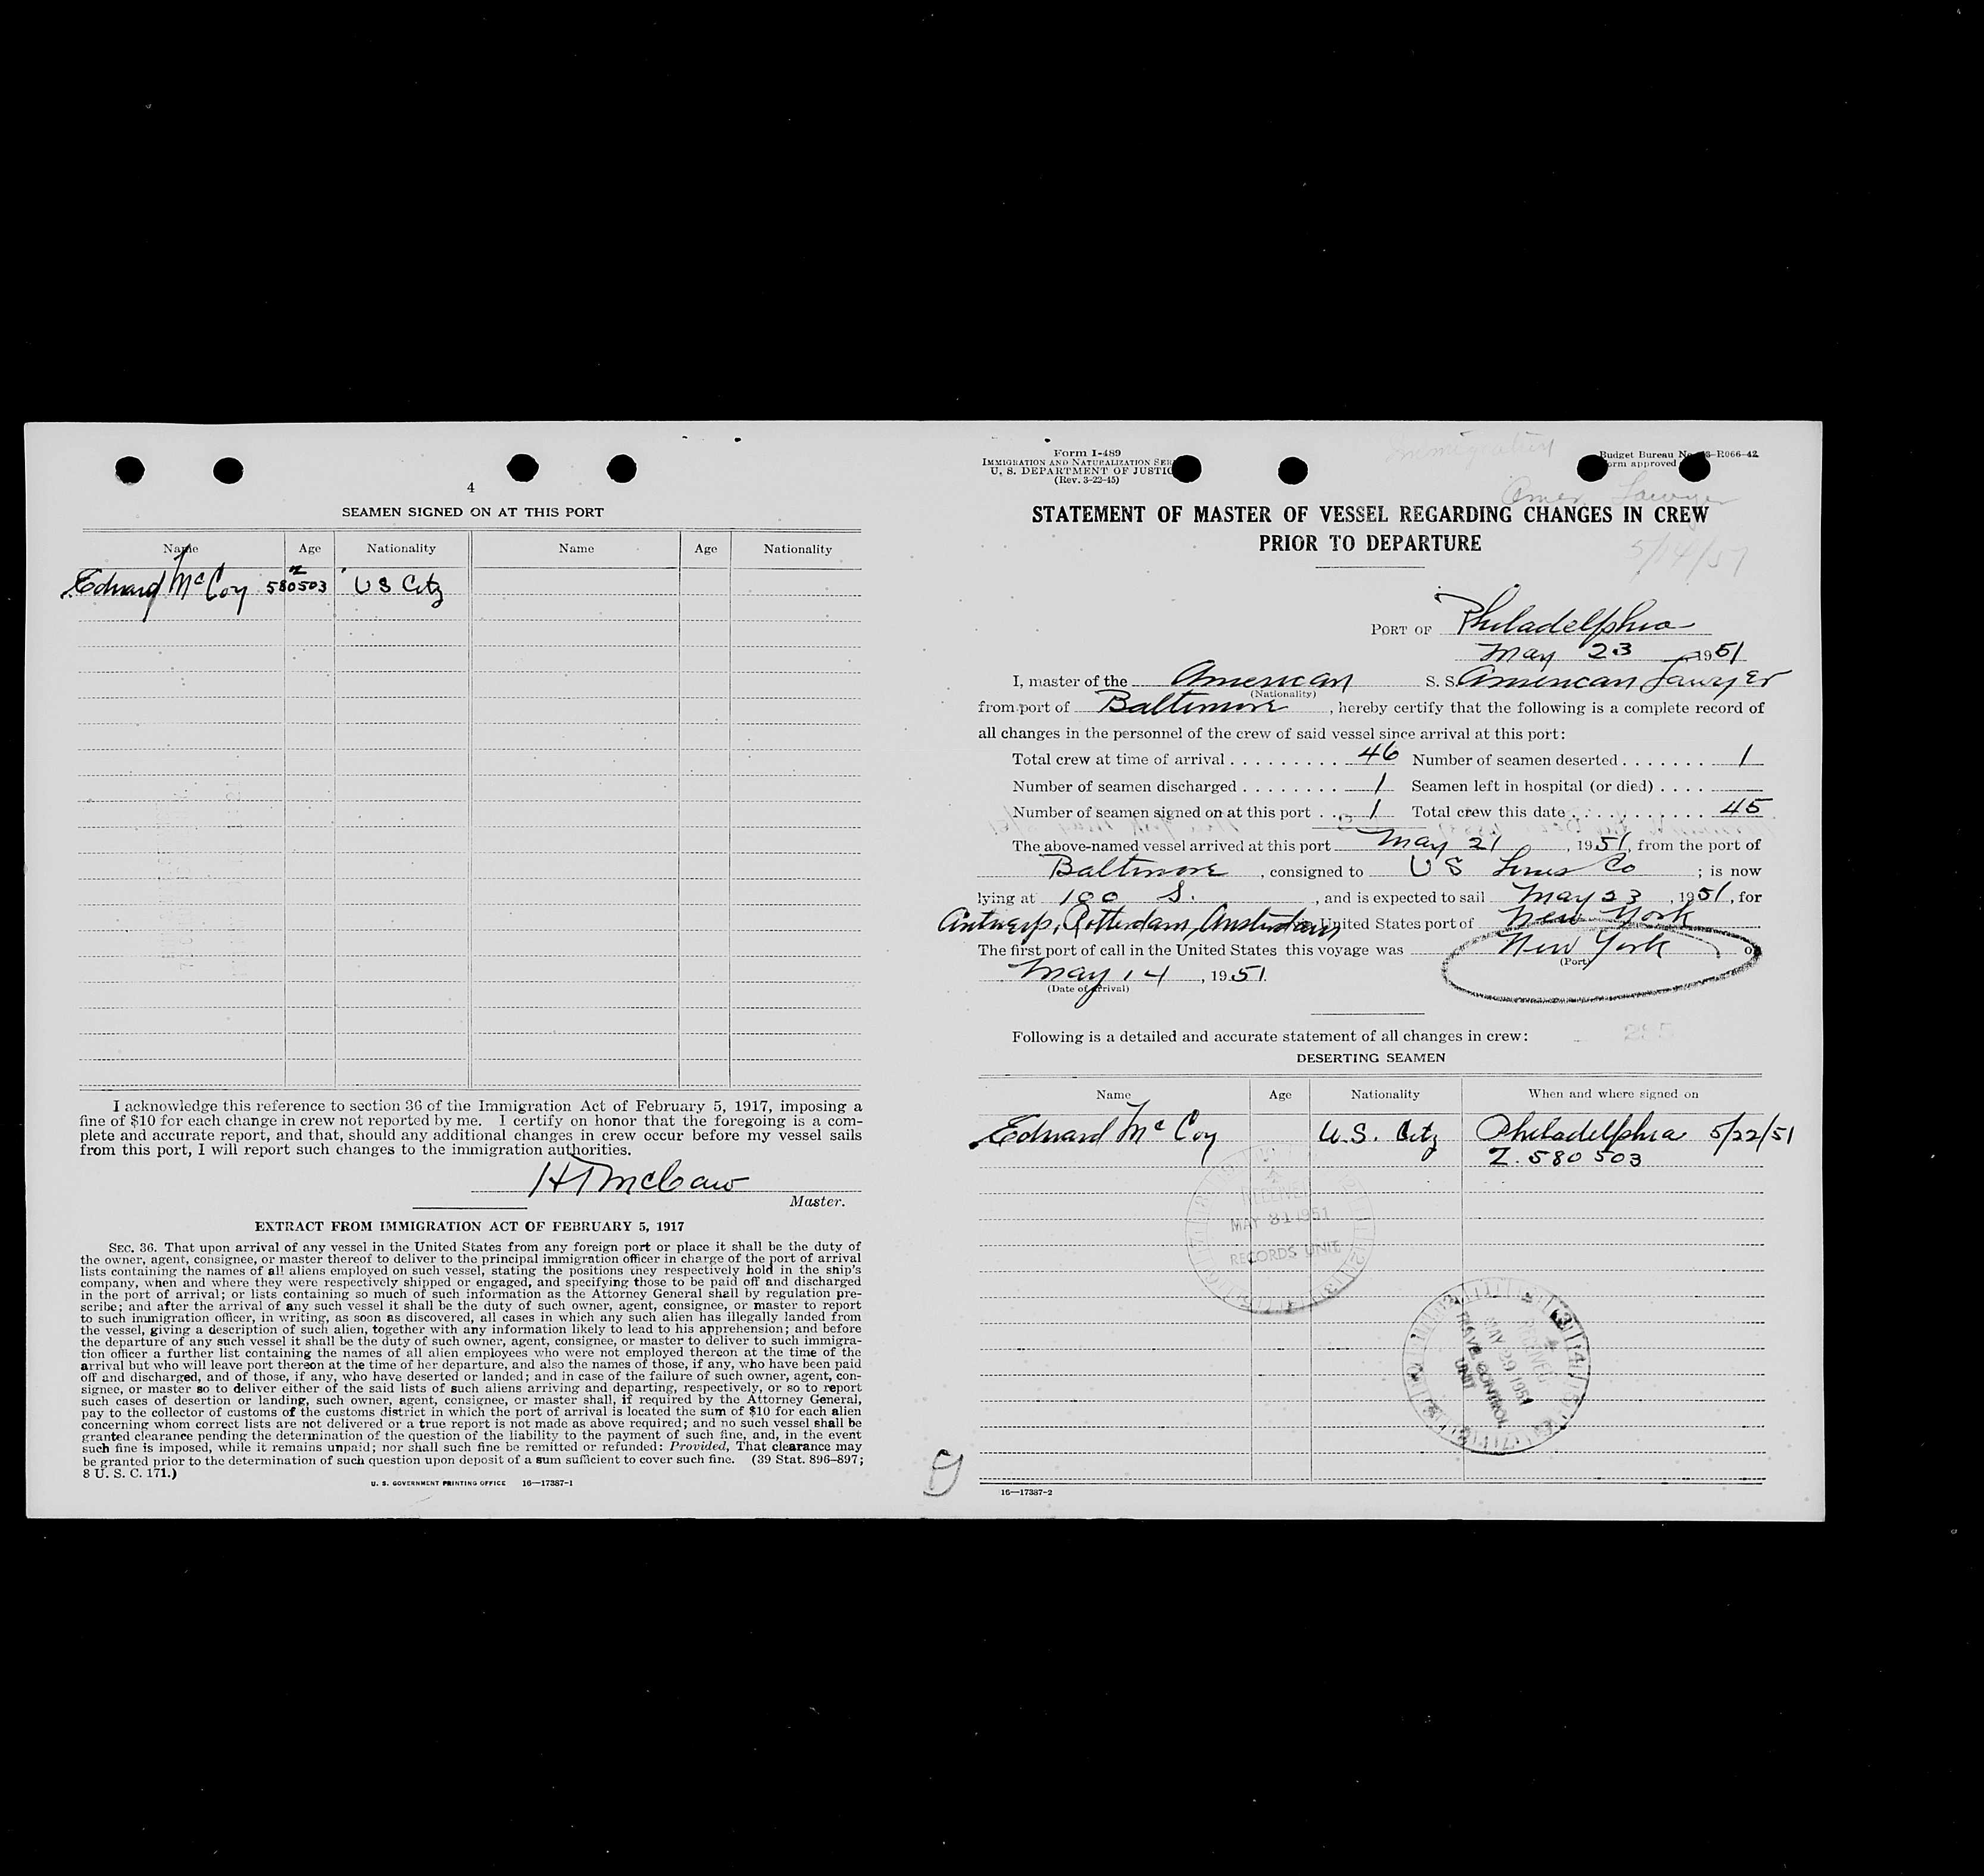 4
SEAMEN SIGNED ON AT THIS PORT
Name Age Nationality Name Age Nationality
Z
Edward McCoy 580503 US Citz
I acknowledge this reference to section 36 of the Immigration Act of February 5, 1917, imposing a
fine of $10 for each change in crew not reported by me. I certify on honor that the foregoing is a com-
plete and accurate report, and that, should any additional changes in crew occur before my vessel sails
from this port, I will report such changes to the immigration authorities.
HT McCaw
Master.
EXTRACT FROM IMMIGRATION ACT OF FEBRUARY 5, 1917
SEC. 36. That upon arrival of any vessel in the United States from any foreign port or place it shall be the duty of
the owner, agent, consignee, or master thereof to deliver to the principal immigration officer in charge of the port of arrival
lists containing the names of all aliens employed on such vessel, stating the positions they respectively hold in the ship's
company, when and where they were respectively shipped or engaged, and specifying those to be paid off and discharged
in the port of arrival; or lists containing so much of such information as the Attorney General shall by regulation pre-
scribe; and after the arrival of any such vessel it shall be the duty of such owner, agent, consignee, or master to report
to such immigration officer, in writing, as soon as discovered, all cases in which any such alien has illegally landed from
the vessel, giving a description of such alien, together with any information likely to lead to his apprehension; and before
the departure of any such vessel it shall be the duty of such owner, agent, consignee, or master to deliver to such immigra-
tion officer a further list containing the names of all alien employees who were not employed thereon at the time of the
arrival but who will leave port thereon at the time of her departure, and also the names of those, if any, who have been paid
off and discharged, and of those, if any, who have deserted or landed; and in case of the failure of such owner, agent, con-
signee, or master so to deliver either of the said lists of such aliens arriving and departing, respectively, or so to report
such cases of desertion or landing, such owner, agent, consignee, or master shall, if required by the Attorney General,
pay to the collector of customs of the customs district in which the port of arrival is located the sum of $10 for each alien
concerning whom correct lists are not delivered or a true report is not made as above required; and no such vessel shall be
granted clearance pending the determination of the question of the liability to the payment of such fine, and, in the event
such fine is imposed, while it remains unpaid; nor shall such fine be remitted or refunded: Provided, That clearance may
be granted prior to the determination of such question upon deposit of a sum sufficient to cover such fine. (39 Stat. 896-897;
8 U. S. C. 171.)
U. S. GOVERNMENT PRINTING OFFICE 16—17387-1
Form I-489
IMMIGRATION AND NATURALIZATION SER
U. S. DEPARTMENT OF JUSTIC
(Rev. 3-22-45)
Immigration
Budget Bureau No. 43-R066-42
orm approved
Amer Lawyer
STATEMENT OF MASTER OF VESSEL REGARDING CHANGES IN CREW
PRIOR TO DEPARTURE
5/14/51
PORT OF Philadelphia
May 23 1951
I, master of the American S. S. American Lawyer
(Nationality)
from port of Baltimore, hereby certify that the following is a complete record of
all changes in the personnel of the crew of said vessel since arrival at this port:
Total crew at time of arrival 46 Number of seamen deserted 1
Number of seamen discharged 1 Seamen left in hospital (or died)
Number of seamen signed on at this port 1 Total crew this date 45
The above-named vessel arrived at this port May 21, 1951, from the port of
Baltimore, consigned to US Lines Co; is now
lying at 100 S., and is expected to sail May 23, 1951, for
Antwerp, Rotterdam, Amsterdam United States port of New York
The first port of call in the United States this voyage was New York on
(Port)
May 14, 1951.
(Date of arrival)
Following is a detailed and accurate statement of all changes in crew:
DESERTING SEAMEN
Name Age Nationality When and where signed on
Edward McCoy U.S. Citz Philadelphia 5/22/51
Z. 580503
RECEIVED
MAY 31 1951
RECORDS UNIT
RECEIVED
MAY 29 1951
TRAVEL CONTROL
UNIT
16—17387-2